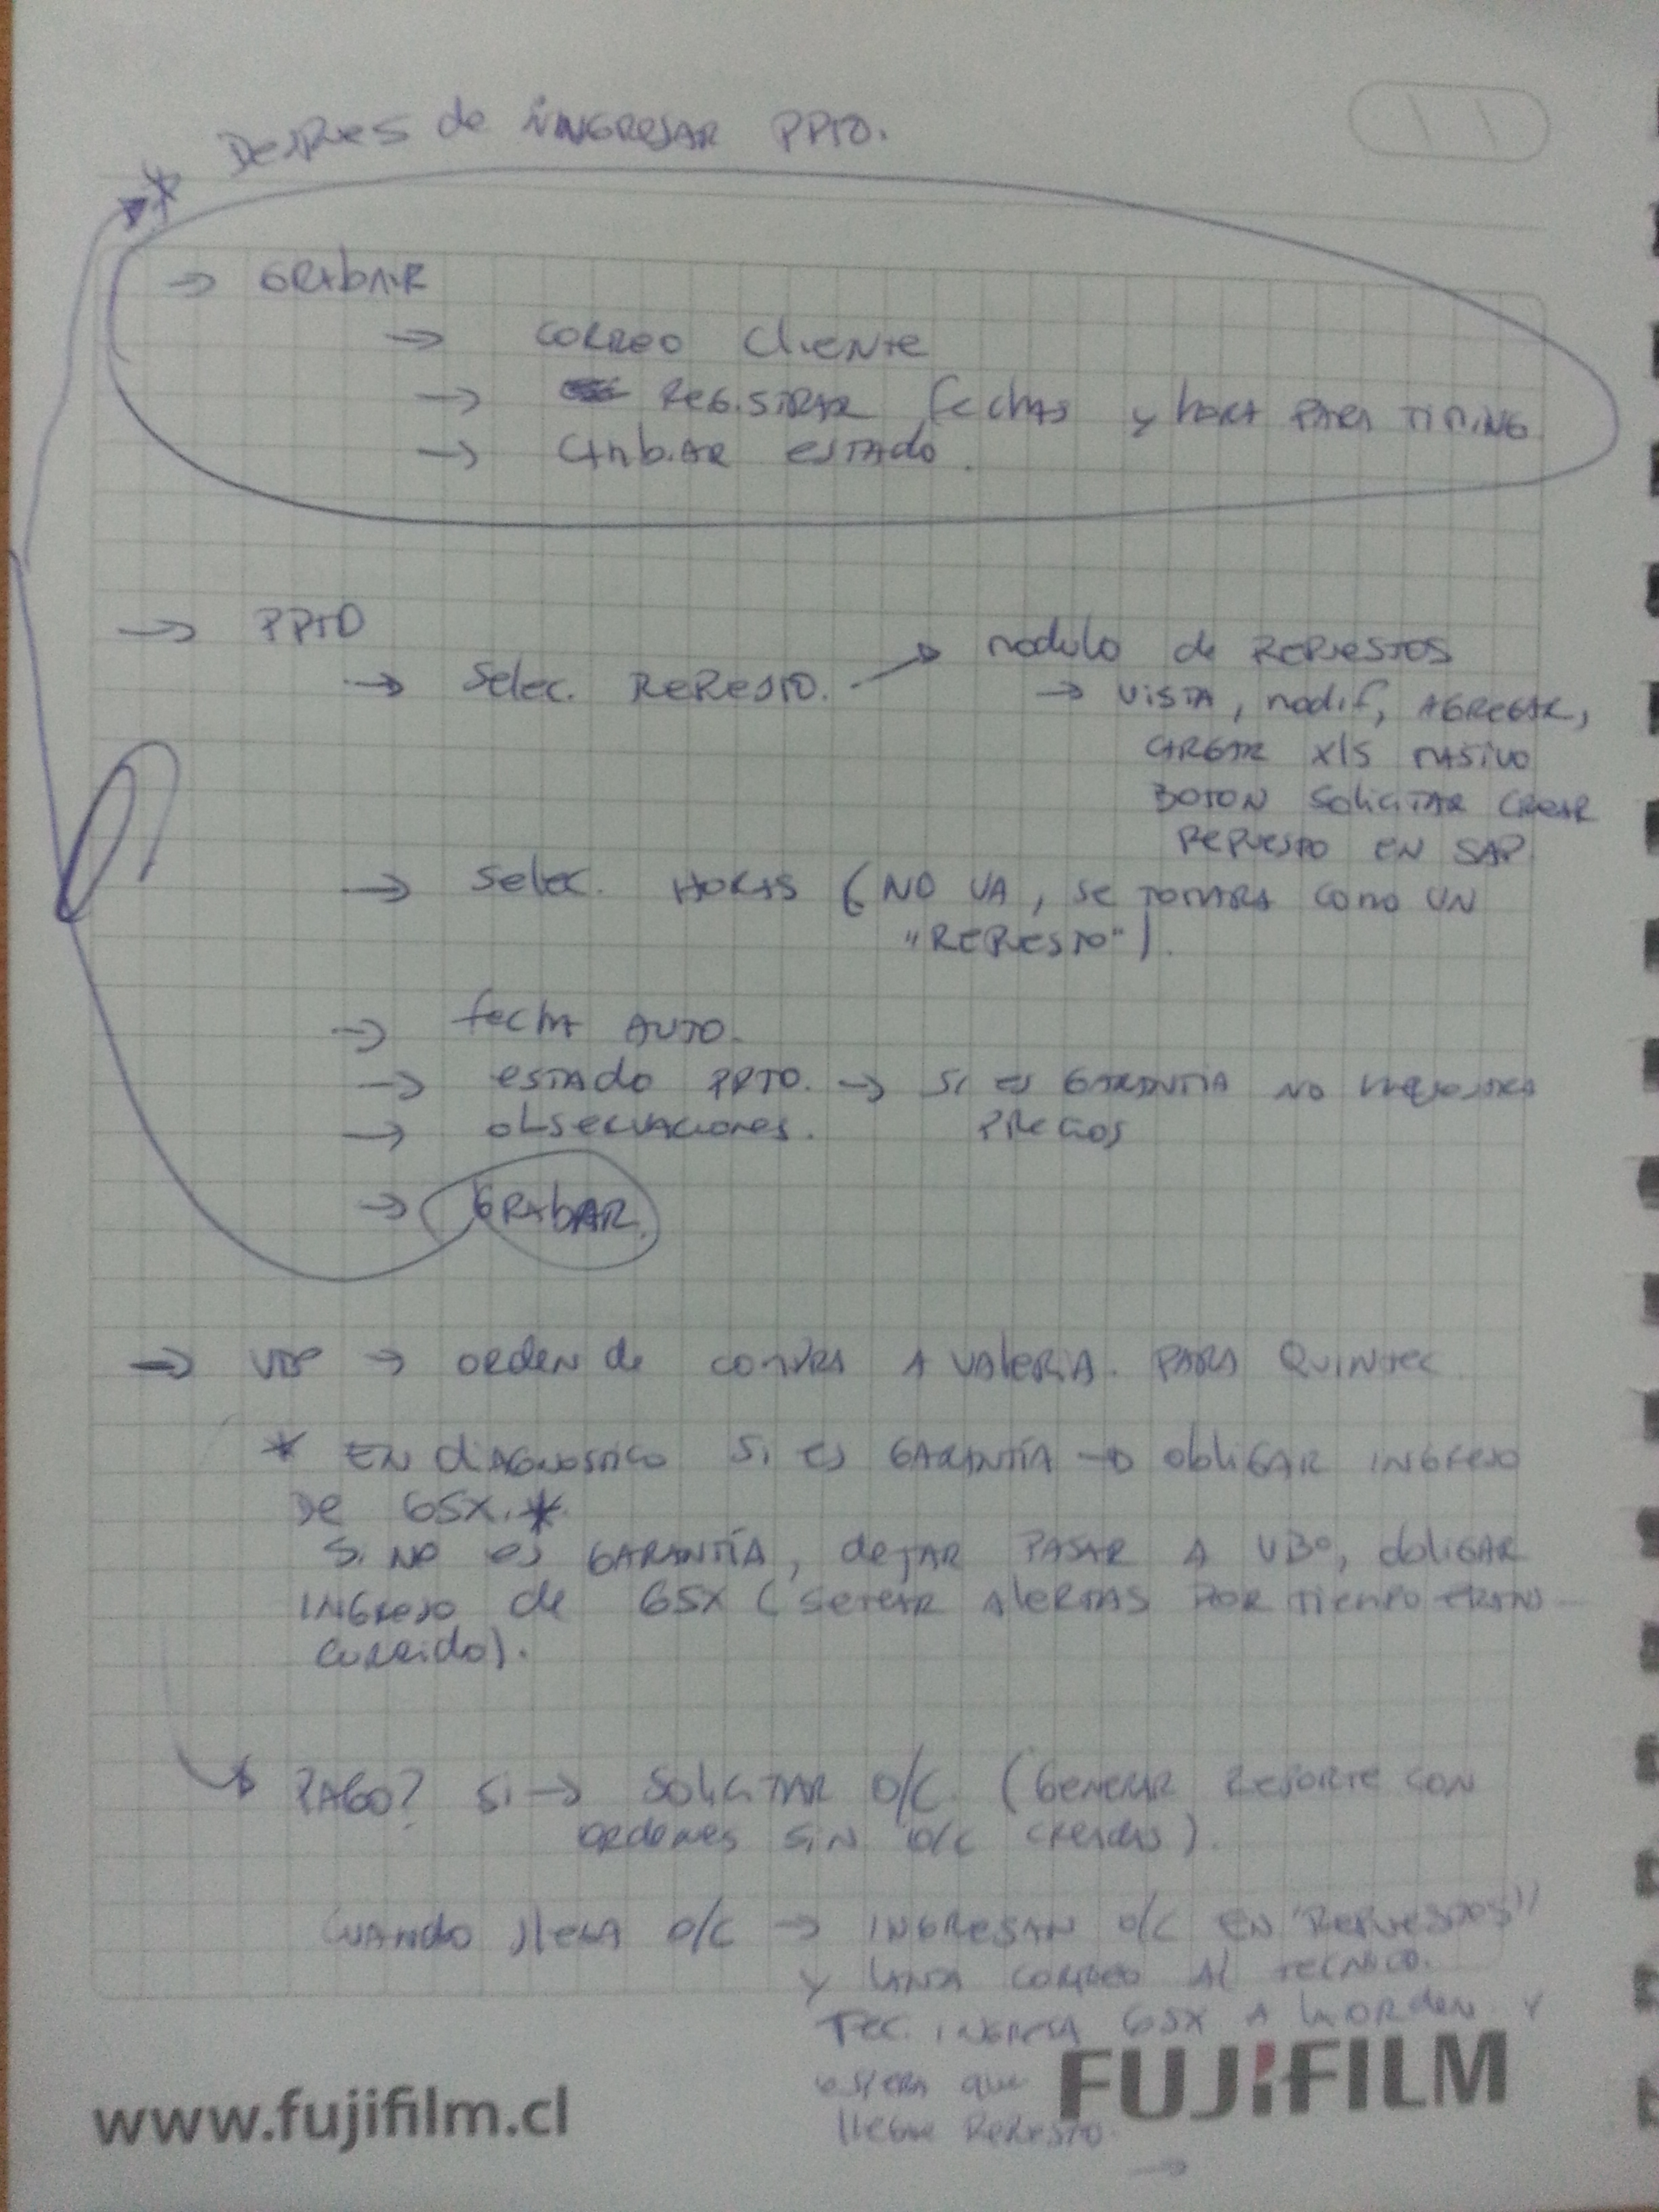 DESPUES de INGRESAR PPTO.
*
→ GRABAR
→ CORREO CLIENTE
→ REGISTRAR fechas y hora PARA TIMING
→ CAMBIAR ESTADO.
→ PPTO
→ Selec. REPUESTO. → modulo de REPUESTOS
→ VISTA, modif, AGREGAR,
CARGAR xls MASIVO
BOTON SOLICITAR CREAR
REPUESTO EN SAP
→ Selec. HORAS (NO VA, se TOMARA como UN
"REPUESTO").
→ fecha AUTO.
→ ESTADO PPTO. → SI ES GARANTIA NO
→ observaciones. PRECIOS
→ GRABAR.
→ → ORDEN de COMPRA A VALERIA. PARA QUINTEC
* EN DIAGNOSTICO SI ES GARANTÍA → obligAR INGRESO
DE GSX. *
SI NO es GARANTÍA, dejAR PASAR A VBº, obligAR
INGRESO de GSX (SETEAR AlERTAS POR TIEMPO TRANS-
CURRIDO).
PAGO? SI → SOLICITAR O/C. (GENERAR REPORTE CON
ORDENES SIN O/C CREADAS).
CUANDO llEGA O/C → INGRESAN O/C EN "REPUESTOS"
Y LANZA CORREO Al TECNICO.
TEC. INGRESA GSX A LA ORDEN Y
ESPERA que
llegue REPUESTO.
→
www.fujifilm.cl
FUJIFILM